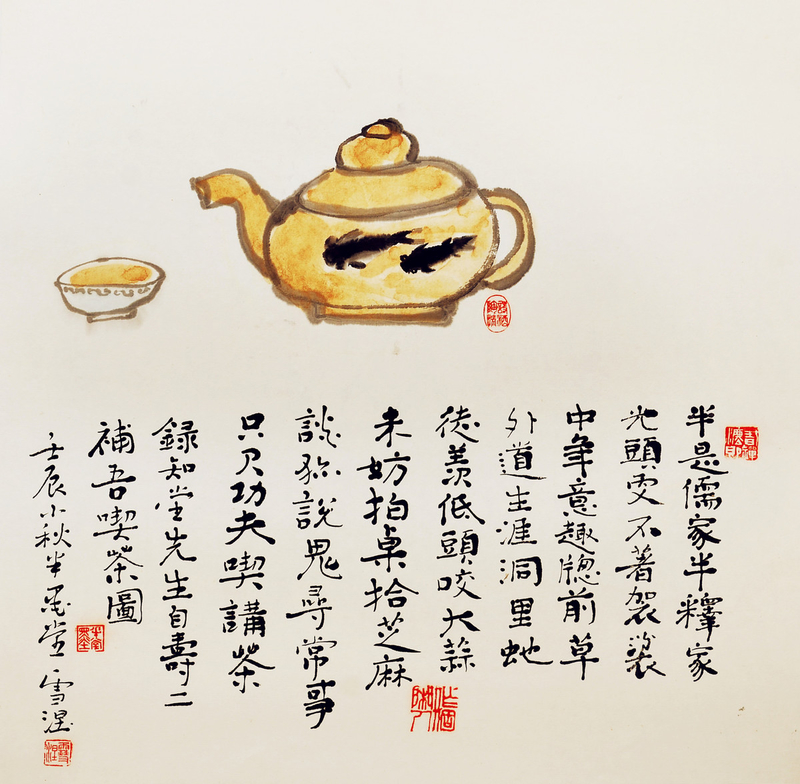 半是儒家半釋家
光頭更不著袈裟
中年意趣牕前草
外道生涯洞里虵
徒羨低頭咬大蒜
未妨拍桌拾芝麻
談狐說鬼尋常事
只欠功夫喫講茶
錄知堂先生自壽二
補吾喫茶圖
壬辰小秋半墨堂雪涅